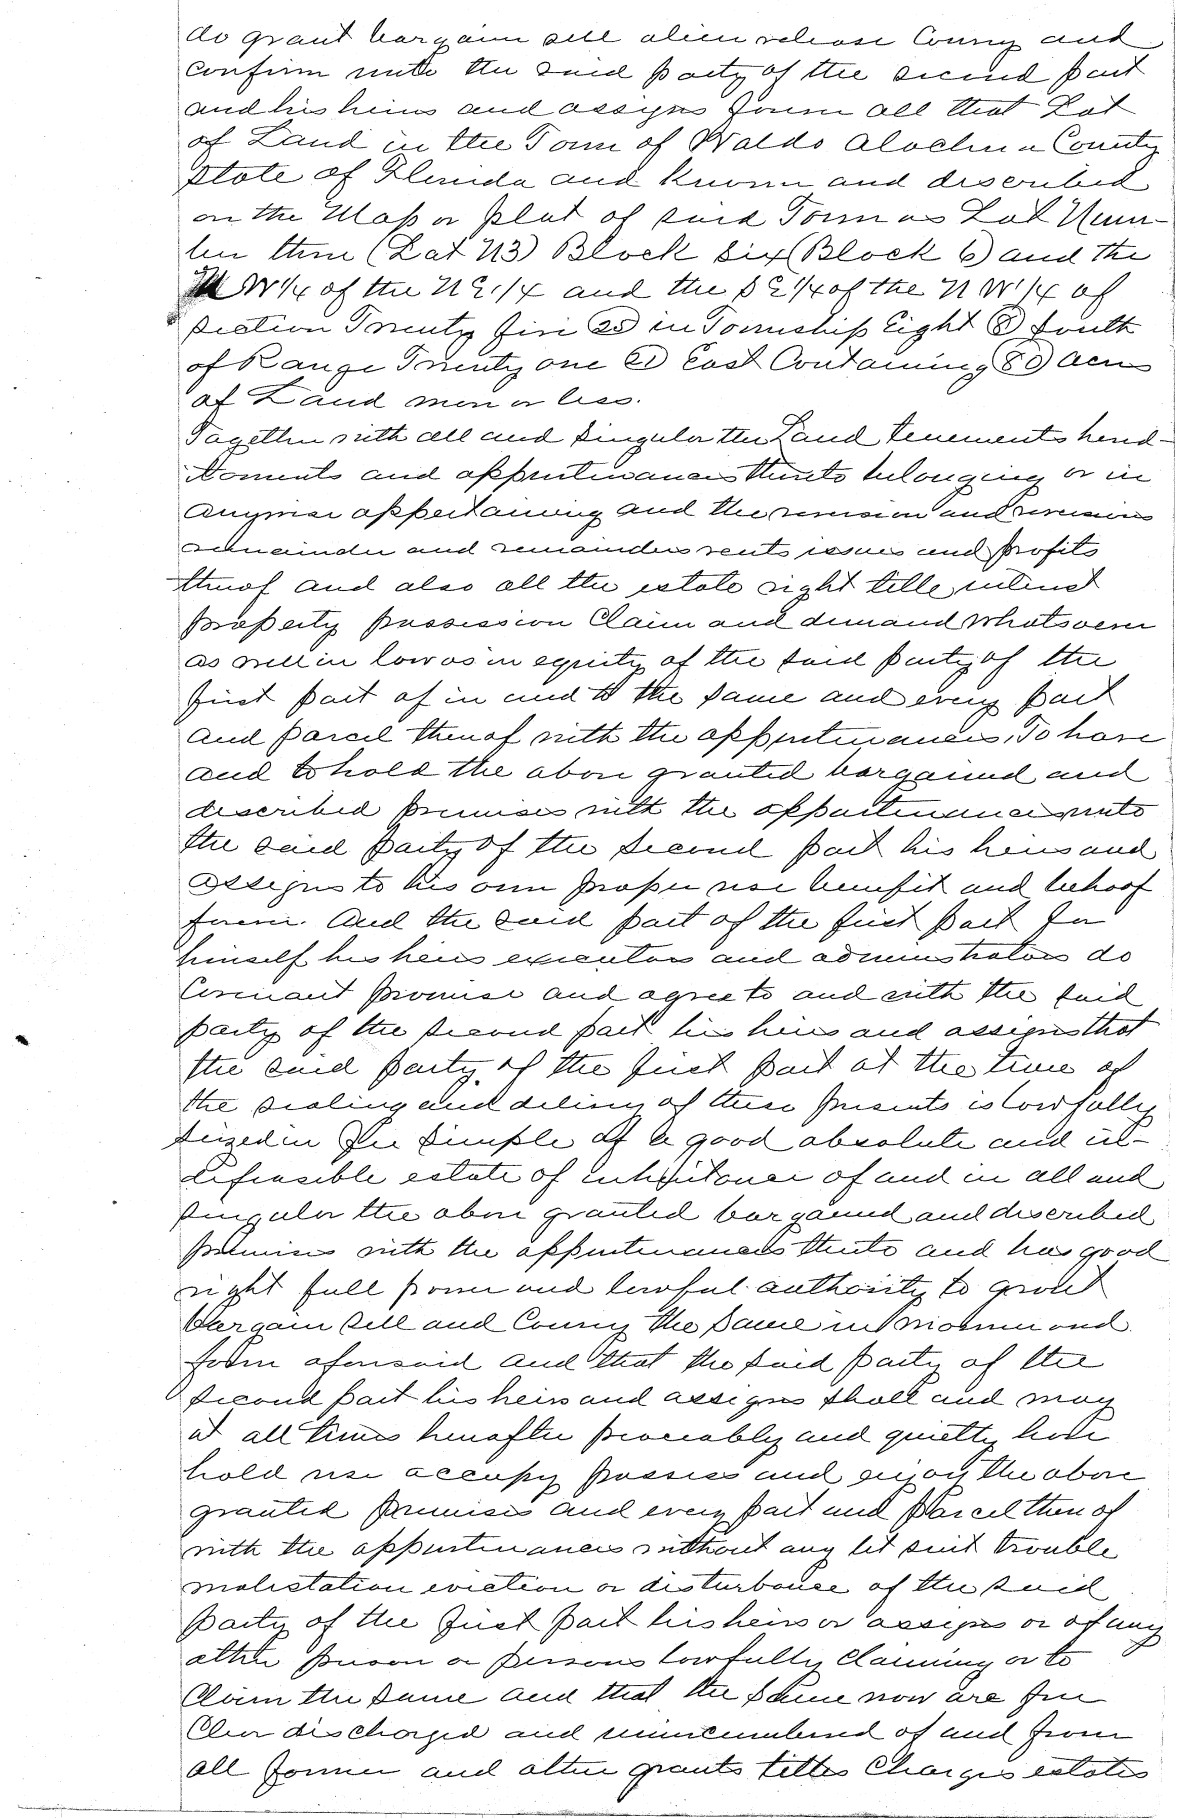 do grant bargain sell alien release Convey and
confirm unto the said party of the second part
and his heirs and assigns forever all that Lot
of Land in the Town of Waldo Alachua County
State of Florida and known and described
on the Map or plat of said Town as Lot Num-
ber three (Lot N3) Block Six (Block 6) and the
NW 1/4 of the NE 1/4 and the SE 1/4 of the NW 1/4 of
Section Twenty five 25 in Township Eight 8 South
of Range Twenty one 21 East Containing (80) acres
of Land more or less.
Together with all and singular the Land tenements hered-
itaments and appurtenances thereto belonging or in
anywise appertaining and the reversion and reversions
remainder and remainders rents issues and profits
thereof and also all the estate right title interest
property possession Claim and demand whatsoever
as well in law as in equity of the said party of the
first part of in and to the same and every part
and parcel thereof with the appurtenances. To have
and to hold the above granted bargained and
described premises with the appurtenances unto
the said party of the second part his heirs and
assigns to his own proper use benefit and behoof
forever. And the said part of the first part for
himself his heirs executors and administrators do
Covenant promise and agree to and with the said
party of the second part his heirs and assigns that
the said party of the first part at the time of
the sealing and delivery of these presents is lawfully
seized in fee simple of a good absolute and in-
defeasible estate of inheritance of and in all and
singular the above granted bargained and described
premises with the appurtenances thereto and has good
right full power and lawful authority to grant
bargain sell and Convey the same in manner and
form aforesaid and that the said party of the
second part his heirs and assigns shall and may
at all times hereafter peaceably and quietly have
hold use occupy possess and enjoy the above
granted premises and every part and parcel thereof
with the appurtenances without any let suit trouble
molestation eviction or disturbance of the said
party of the first part his heirs or assigns or of any
other person or persons lawfully claiming or to
Claim the same and that the same now are free
Clear discharged and unincumbered of and from
all former and other grants titles Charges estates